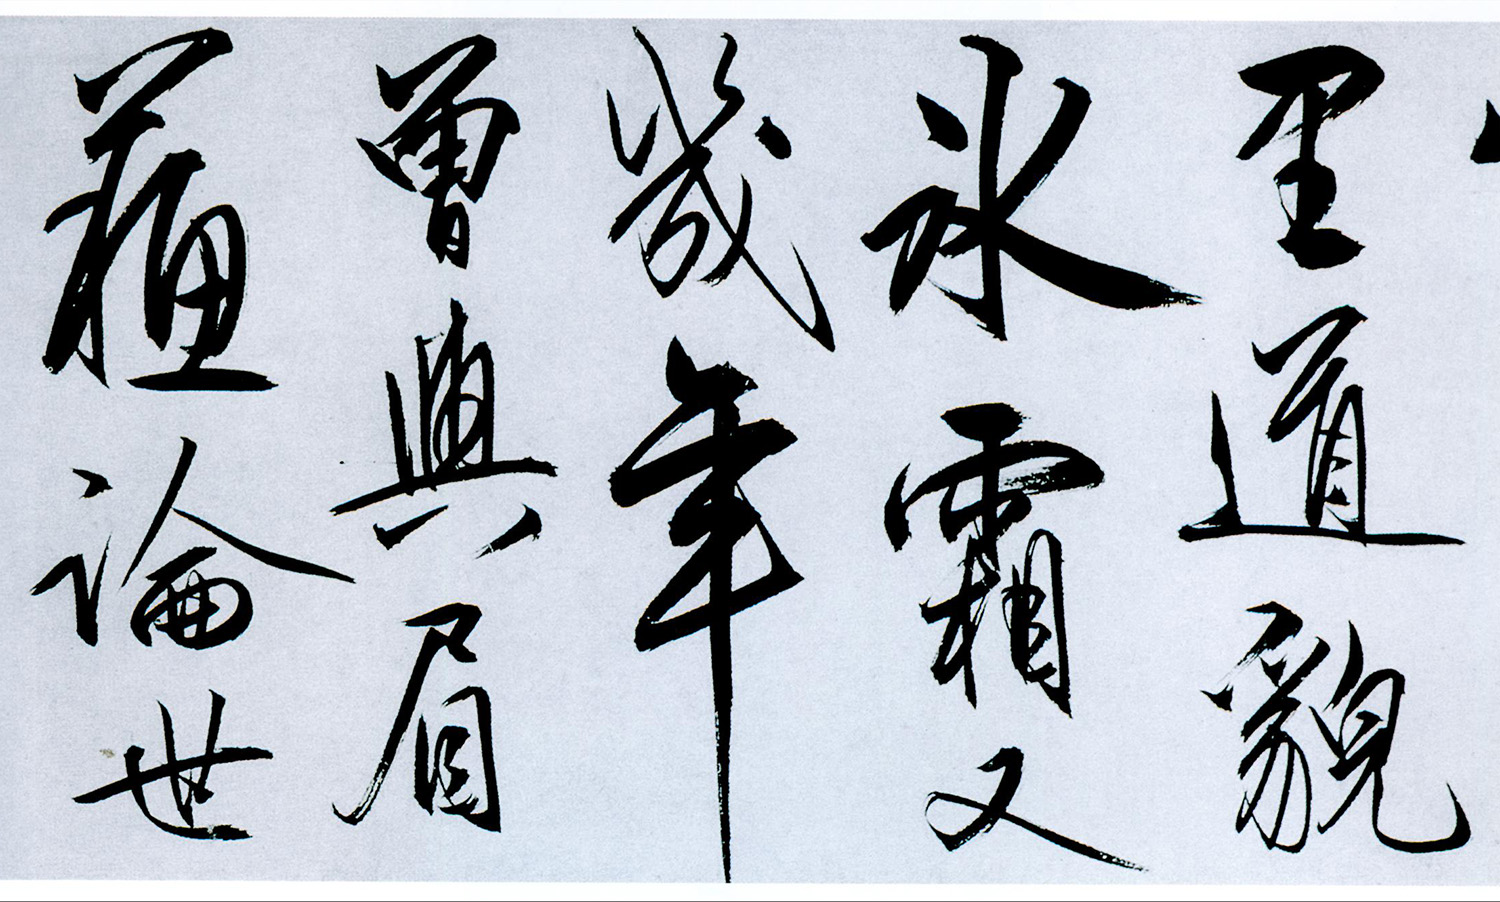 里道貌
冰霜又
幾年
曾與眉
蘓論世